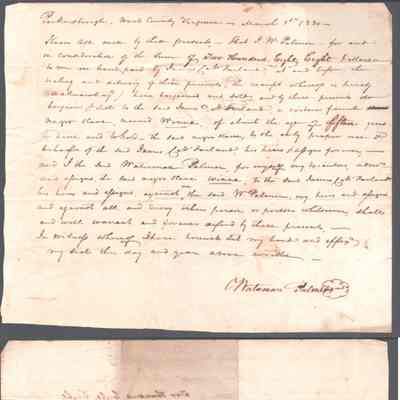 Parkersburgh, Wood County Virginia - March 1st
Know all men by these presents - that I W. Palmer - for and
in consideration of the sum of Two Hundred Eighty Eight Dollars
to me in hand paid by at and before the
sealing and delivery of these presents, the receipt whereof is hereby
have bargained and sold, and by these presents do
bargain & sell to the said James a certain female
negro slave, named of about the age of fifteen years
to have and to hold the said negro slave, to the only proper use &
behoofe of the said James his heirs & assigns forever, -
and I the said Palmer, for myself my executors,
and assigns the said negro slave to the said James
his heirs and assigns, against the said W Palmer, my heirs and assigns
and against all and every other person or persons whatsoever, shall
and will warrant and forever defend by these presents, -
In witness whereof I have hereunto set my hand and
my seal this day and year above written -
Palmer